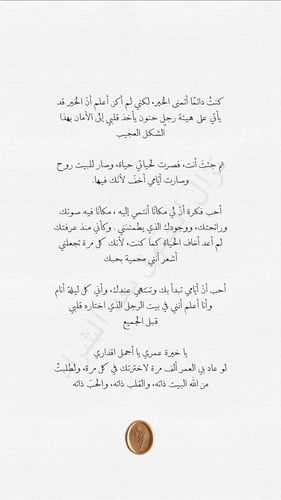 كنتُ دائمًا أتمنى الخير، لكني لم أكن أعلم أنَ الخير قد
يأتي على هيئة رجلٍ حنون يأخذ قلبي إلى الأمان بهذا
الشكل العجيب
ثم جئتَ أنت، فصرت لحياتي حياة، وصار للبيت روح
وصارت أيّامي أخفّ لأنك فيها.
أحب فكرة أنّ لي مكانًا أنتمي إليه ، مكانًا فيه صوتك
ورائحتك، ووجودك الذي يطمئنني . وكأني منذ عرفتك
لم أعد أخاف الحياة كما كنت، لأنك كل مرة تجعلني
أشعر أنني محمية بحبك
أحب أنّ أيّامي تبدأ بك وتنتهي عندك، وأني كل ليلة أنام
وأنا أعلم أنني في بيت الرجل الذي اختاره قلبي
قبل الجميع
يا خيرة عمري يا أجمل اقداري
لو عاد بي العمر ألف مرة لاخترتك في كل مرة، ولطلبتُ
من الله البيت ذاته، والقلب ذاته، والحبّ ذاته